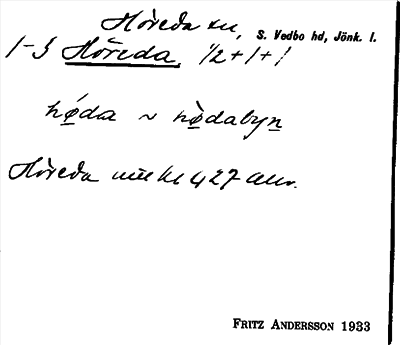 Höreda sn, S. Vedbo hd, Jönk. l.
1-3 Höreda, 1/2+1+1
hø̱da ~ hø̱dabyn̲
Höreda
FRITZ ANDERSSON 1933